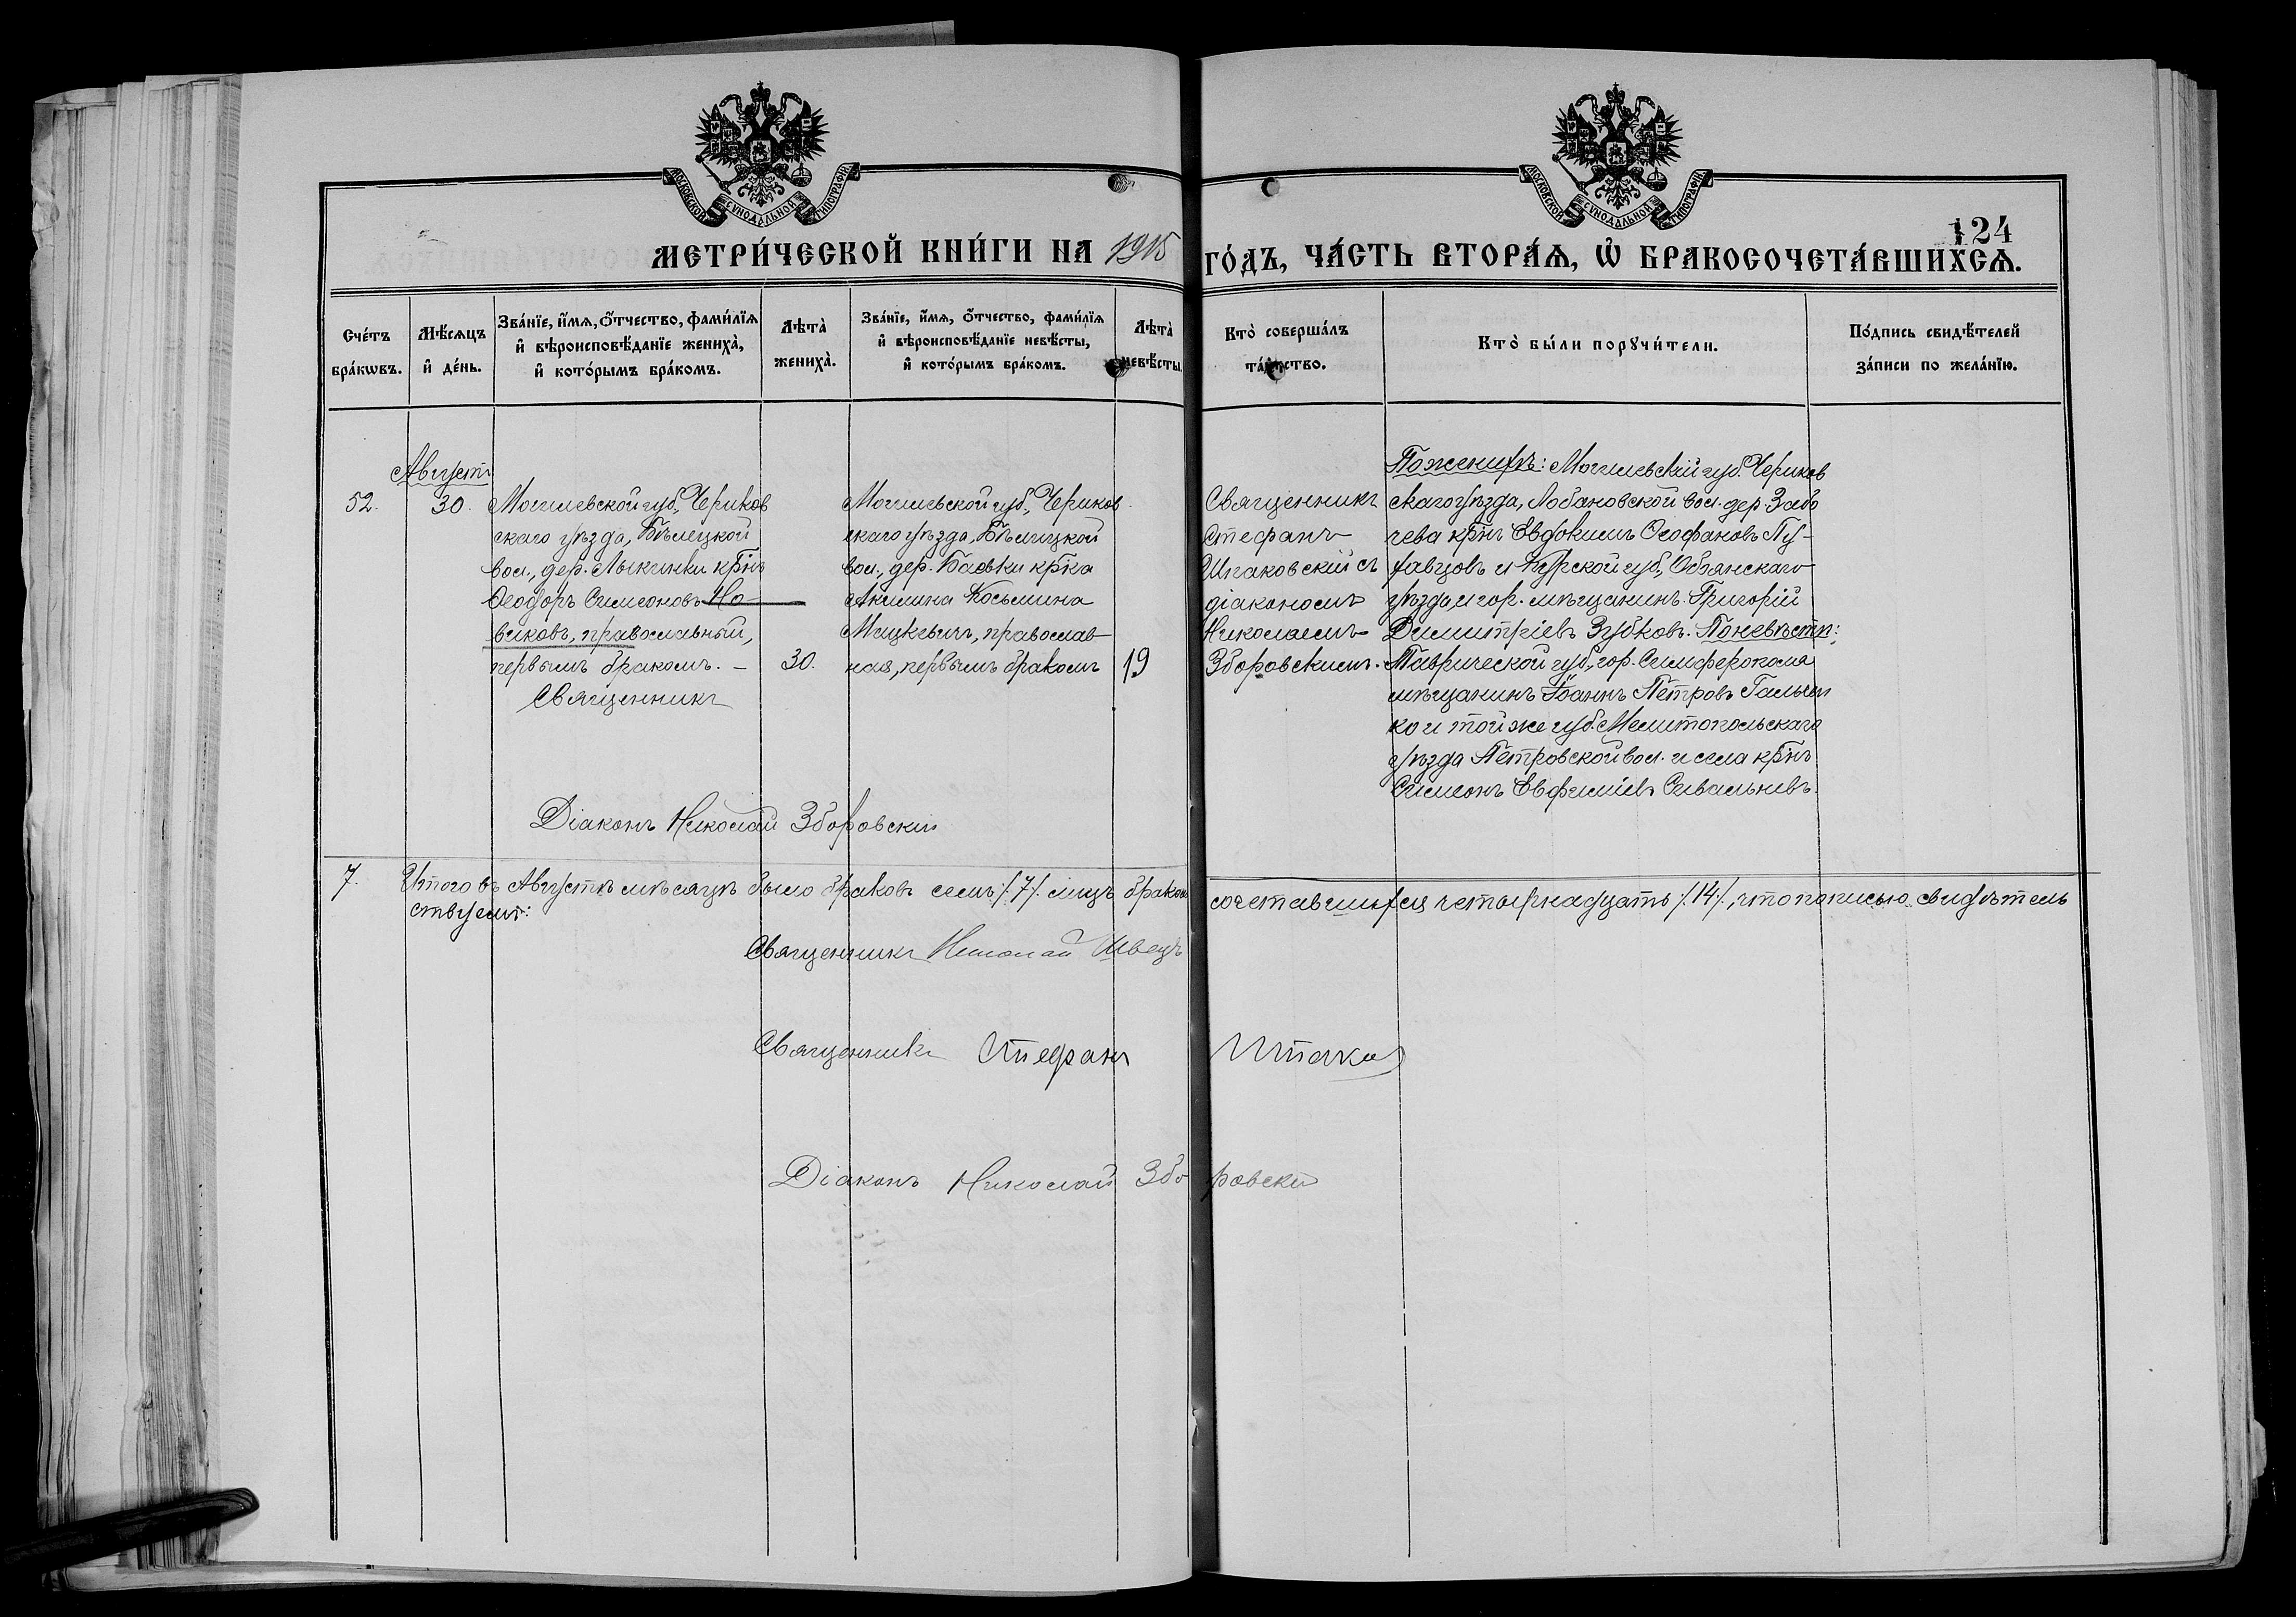 МОСКОВСКОЙ СѴНОДАЛЬНОЙ ТИПОГРАФІИ
МОСКОВСКОЙ СѴНОДАЛЬНОЙ ТИПОГРАФІИ
124
МЕТРИ́ЧЕСКОЙ КНИ́ГИ НА 1915 ГО́ДЪ, ЧА́СТЬ ВТОРА́Ѧ, Ѽ БРАКОСОЧЕТА́ВШИХСѦ.
Сче́тъ бра́кѡвъ.
Мѣ́сѧцъ и҆ де́нь.
Зва́нїе, и҆́мѧ, ѻ҆́тчество, фами́лїѧ и҆ вѣроисповѣ́данїе жениха̀, и҆ кото́рымъ бра́комъ.
Лѣта̀ жениха̀.
Зва́нїе, и҆́мѧ, ѻ҆́тчество, фами́лїѧ и҆ вѣроисповѣ́данїе невѣ́сты, и҆ кото́рымъ бра́комъ.
Лѣта̀ невѣ́сты.
Кто̀ соверша́лъ та́инство.
Кто̀ бы́ли порꙋчи́тели.
По́дпись свидѣ́телей за́писи по жела́нїю.
52.
Августъ
30.
Могилевской губ., Чериков
скаго уѣзда, Бѣлецкой
вол., дер. Лыкинки крн҃ъ
Ѳеодоръ Симеоновъ Но-
виковъ, православный,
первымъ бракомъ. –
Священникъ
30.
Могильской губ., Чериков
скаго уѣзда, Бѣлицкой
вол., дер. Баевки крн҃ка
Акилина Косьмина
Мицкевичъ, православ
ная, первымъ бракомъ
19
Священникъ
Стефанъ
Шпаковскій съ
діакономъ
Николаемъ
Зборовскимъ.
По женихѣ: Могилевской губ. Чериков
скаго уѣзда, Лобановской вол. дер. Забо
чева крн҃ъ Евдокимъ Ѳеофановъ Пу-
равцовъ и Курской губ., Обоянскаго
уѣзда и гор. мѣщанинъ Григорій
Димитріевъ Зубковъ. По невѣстѣ:
Таврической губ., гор. Симферополя
мѣщанинъ Іоаннъ Петровъ Гальчен
ко и той же губ. Мелитопольскаго
уѣзда Петровской вол. и села крн҃ъ
Симеонъ Евфиміевъ Сивальневъ.
Діаконъ Николай Зборовскій
7. Итого въ Августѣ мѣсяцѣ было браковъ семь /.7/. лицъ бракосочетавшихся четырнадцать /.14/., что подписью свидѣтель
ствуемъ:
Священникъ Николай Швецъ
Священникъ Стефанъ Шпаков
Діаконъ Николай Зборовскій